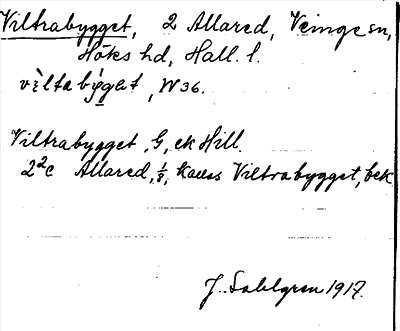 Viltrabygget, 2 Allared, Veinge sn,
Höks hd, Hall. l.
vìltabýget, W36.
Viltrabygget, G, ek Hill.
2²c Allared, 1/8, kallas Viltrabygget, bek
J. Sahlgren 1917.